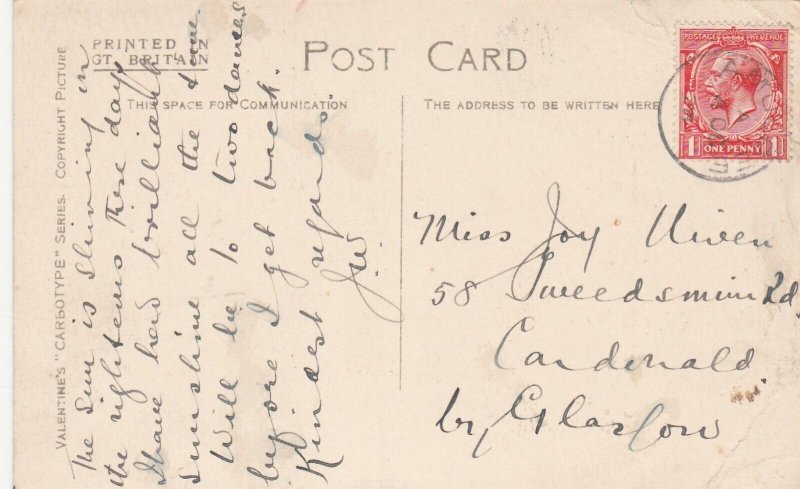 PRINTED IN
GT. BRITAIN
POST CARD
THIS SPACE FOR COMMUNICATION
THE ADDRESS TO BE WRITTEN HERE
VALENTINE'S "CARBOTYPE" SERIES. COPYRIGHT PICTURE
The Sun is shining on
the righteous these days
I have had brilliant
sunshine all the time
Will be to two dances
before I get back.
Kindest regards.
J.W.
POSTAGE REVENUE
1 ONE PENNY 1
Miss Joy Niven
58 Tweedsmuir Rd.
Cardonald
by Glasgow